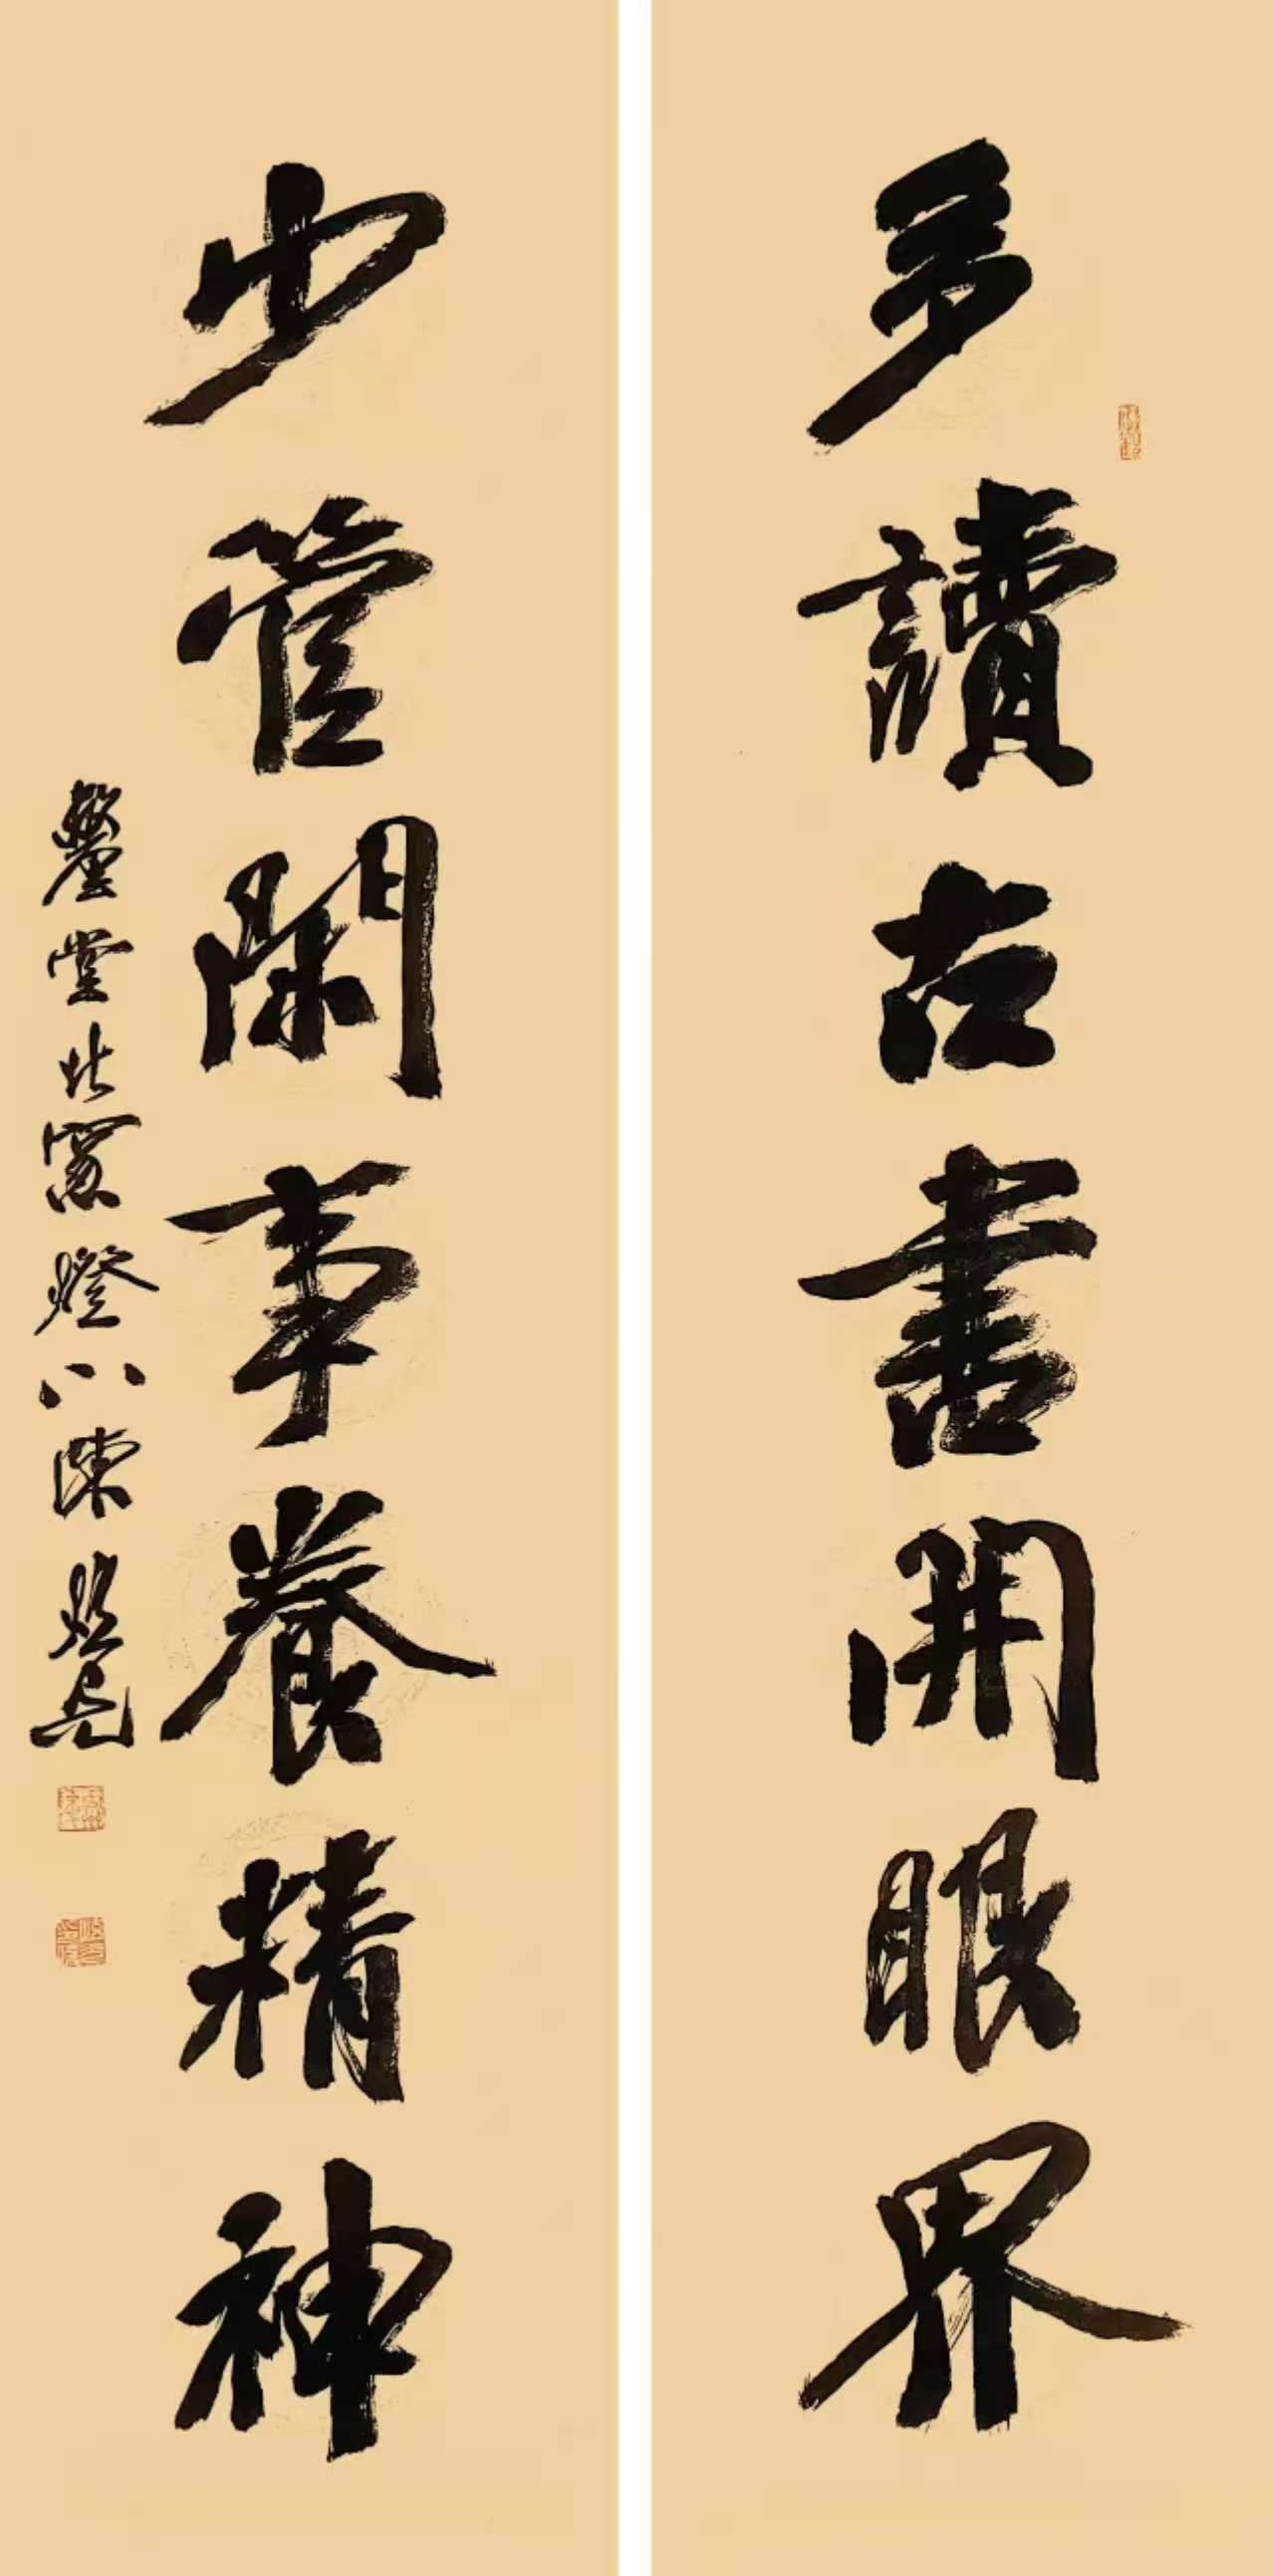 多讀古書開眼界
少管閑事養精神
堂北窗燈下陳